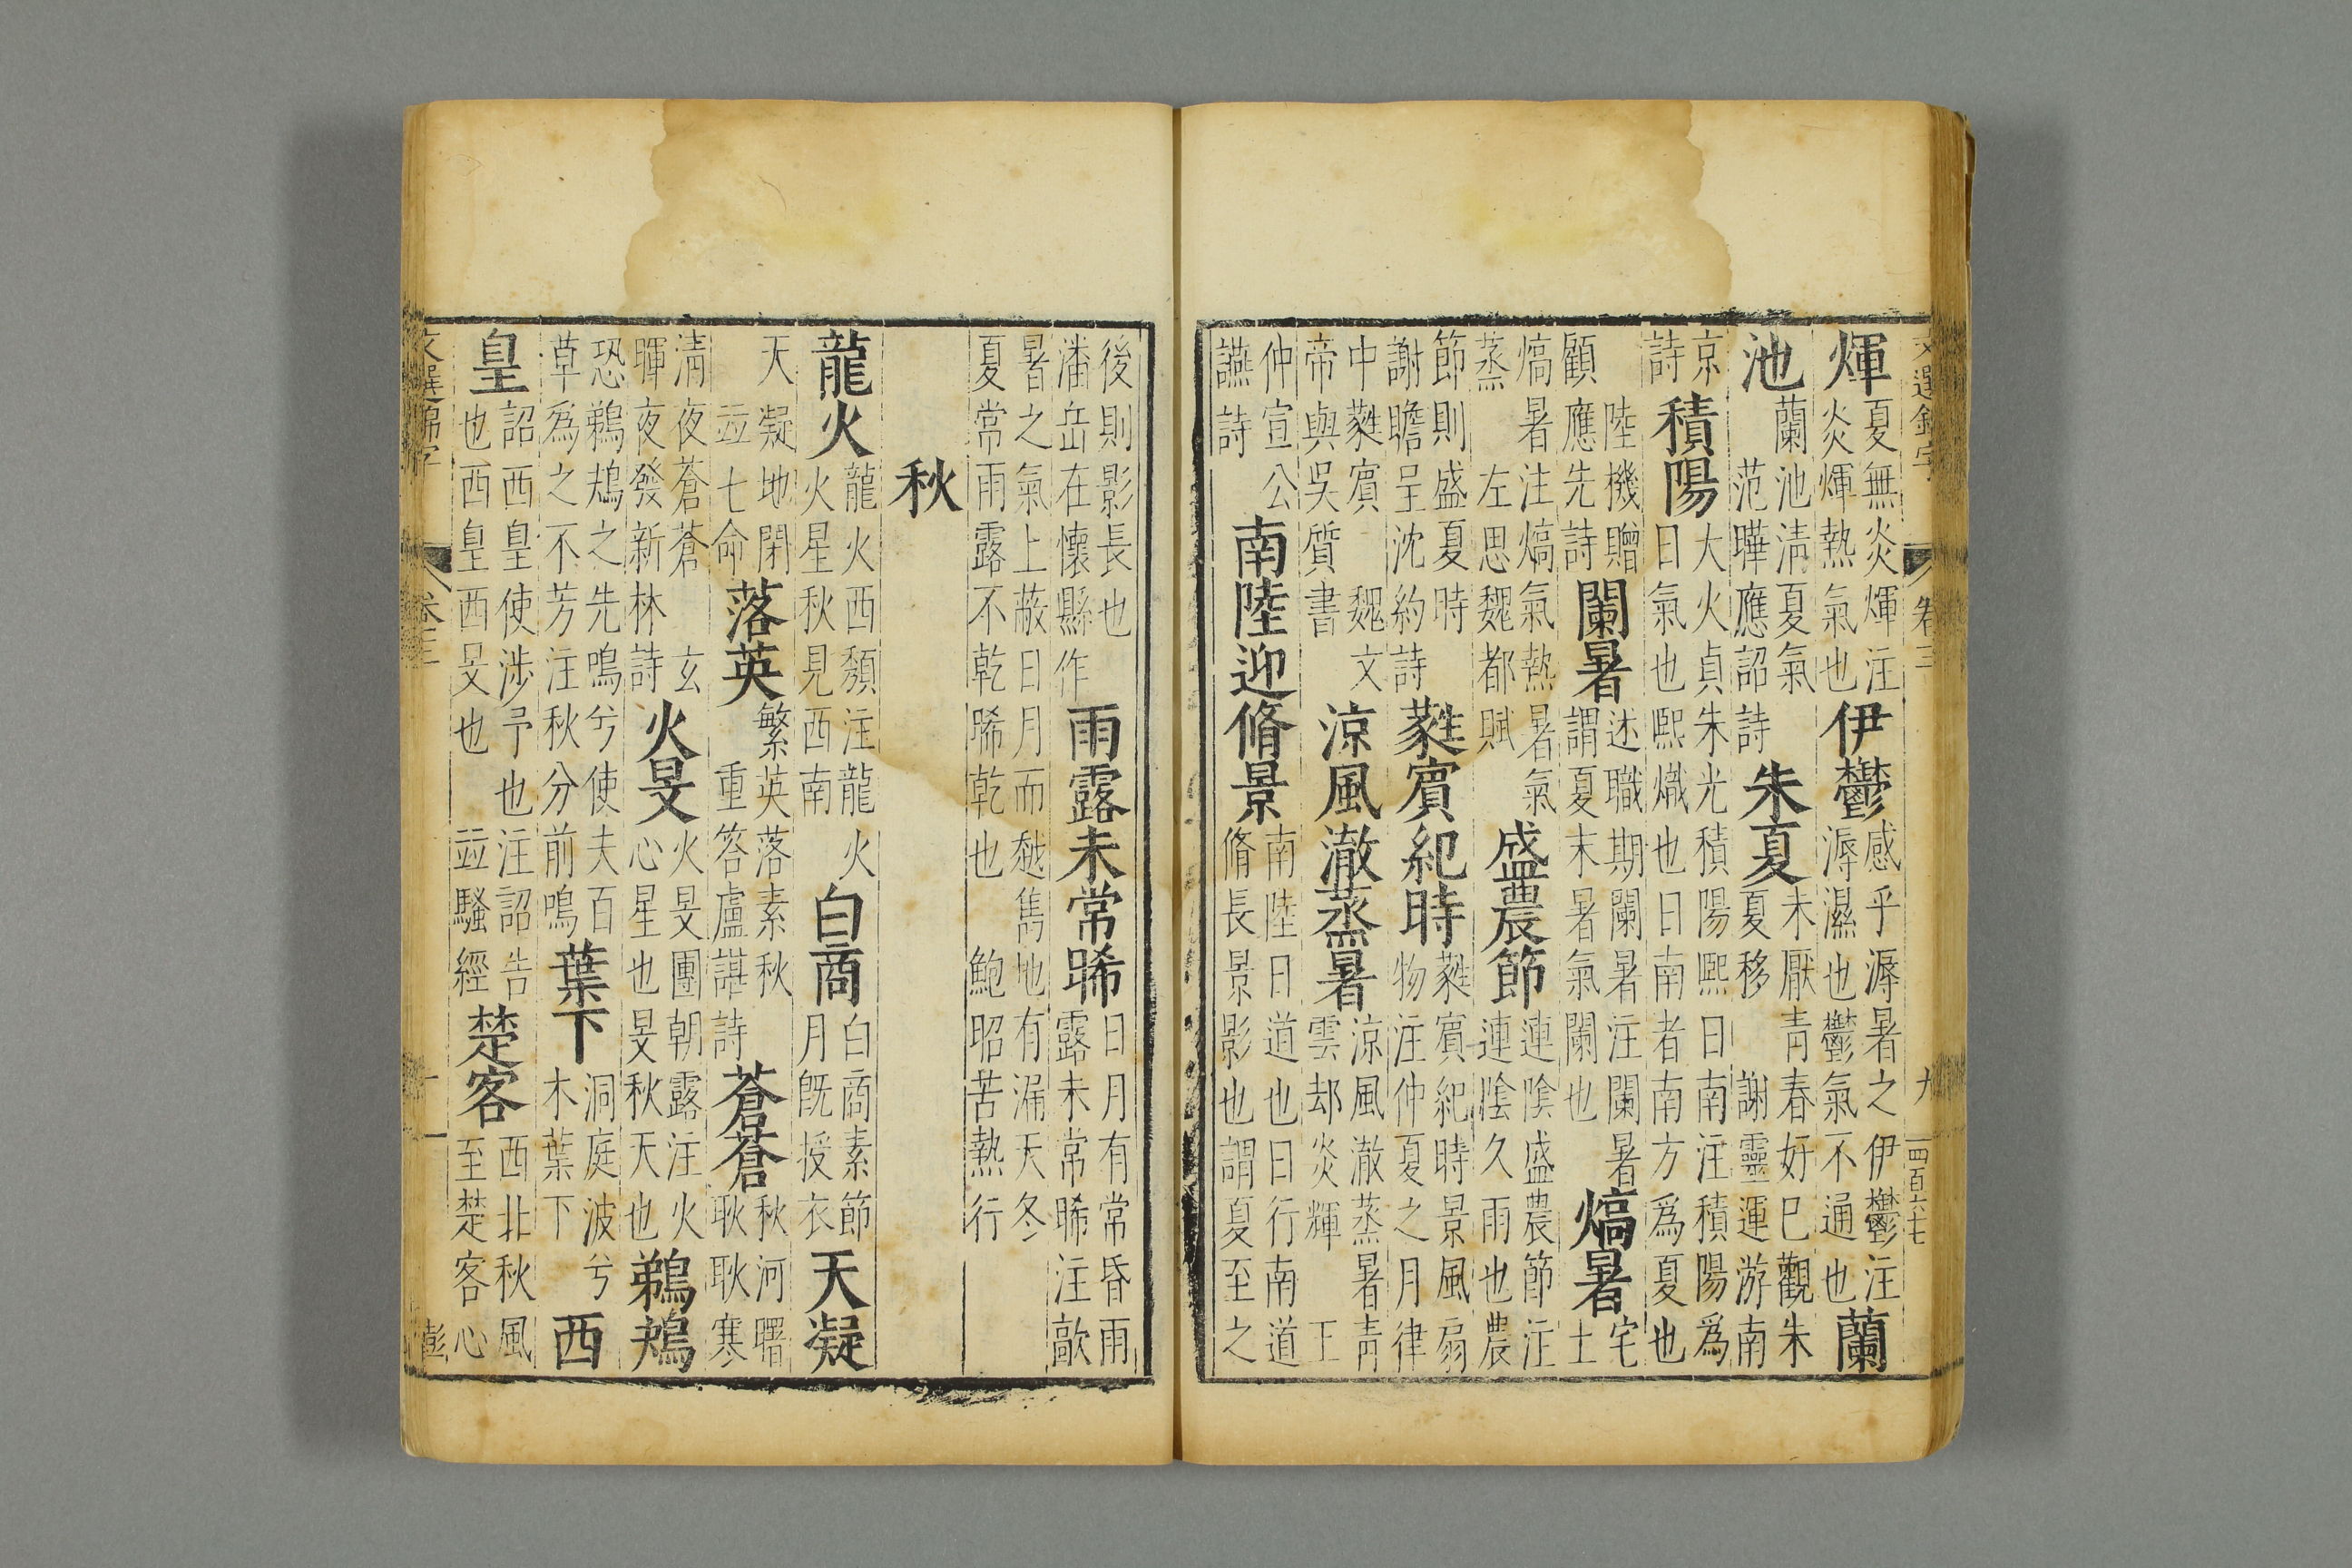 文選錦字 卷三 九 一四百六七
煇夏無炎煇注炎煇熱氣也伊鬱感乎溽暑之伊鬱注溽濕也鬱氣不通也蘭
池蘭池清夏氣范曄應詔詩朱夏未厭青春好已觀朱夏移 謝靈運游南
京詩積陽大火貞朱光積陽熙日南注積陽爲日氣也熙熾也日南者南方爲夏也
陸機贈顧應先詩闌暑述職期闌暑注闌暑謂夏末暑氣闌也熇暑宅土
熇暑注熇氣熱暑氣蒸 左思魏都賦盛農節連陰盛農節注連陰久雨也農
節則盛夏時謝瞻呈沈約詩蕤賓紀時蕤賓紀時景風扇物注仲夏之月律
中蕤賓 魏文帝與吳質書涼風澈蒸暑涼風澈蒸暑青雲却炎輝 王
仲宣公讌詩南陸迎脩景南陸日道也日行南道脩長景影也謂夏至之
後則影長也潘岳在懷縣作雨露未常晞日月有常昏雨露未常晞注歊
暑之氣上蔽日月而越雋地有漏天冬夏常雨露不乾晞乾也 鮑昭苦熱行
秋
龍火龍火西頹注龍火火星秋見西南白商白商素節月旣授衣天凝
天凝地閉並七命落英繁英落素秋重答盧諶詩蒼蒼秋河曙耿耿寒
清夜夜蒼蒼 玄暉夜發新林詩火旻火旻團朝露注火心星也旻秋天也鵜鴂
恐鵜鴂之先鳴兮使夫百草爲之不芳注秋分前鳴葉下洞庭波兮木葉下西
皇詔西皇使涉予也注詔告也西皇西旻也 並騷經楚客西北秋風至楚客心
文選錦字 卷三 十 彭